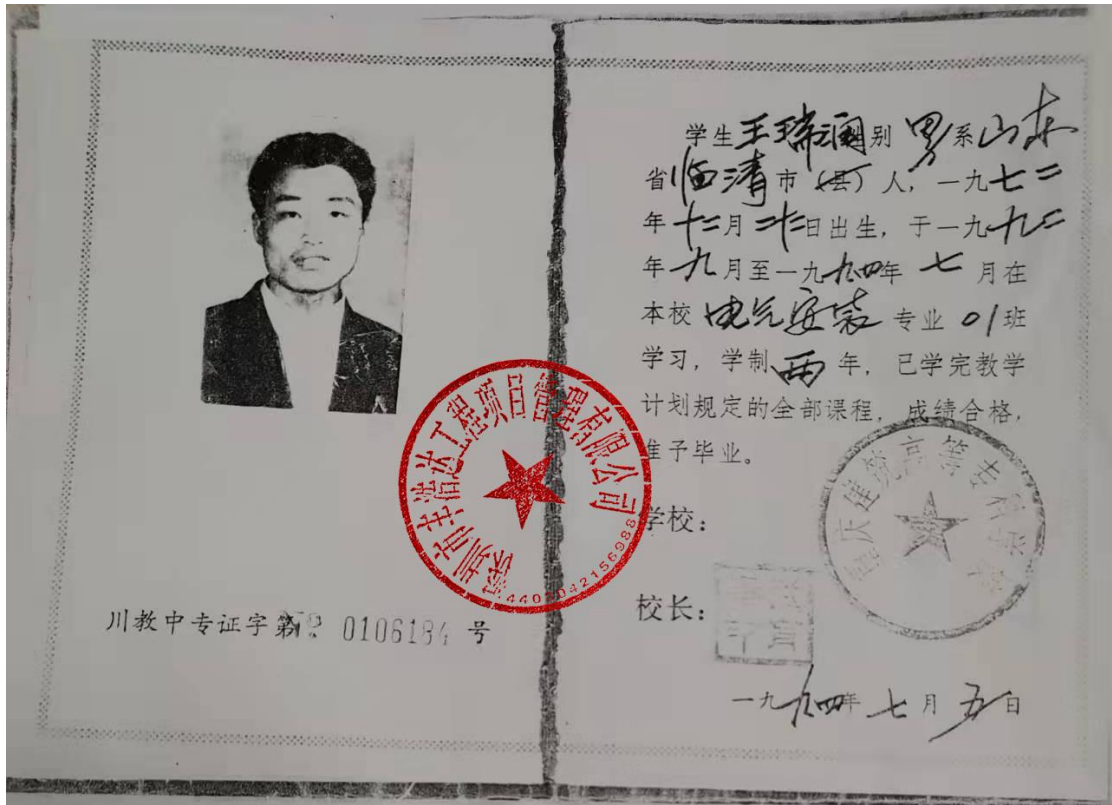 川教中专证字第 0106184 号
深圳市丰浩达工程项目管理有限公司
学生王瑞澜别 男 系山东
省临清市(县)人,一九七二
年十二月二十二日出生,于一九九二
年九月至一九九四年七月在
本校电气安装专业01班
学习,学制两年,已学完教学
计划规定的全部课程,成绩合格,
准予毕业。
学校:
重庆建筑高等专科学校
校长:
一九九四年七月五日